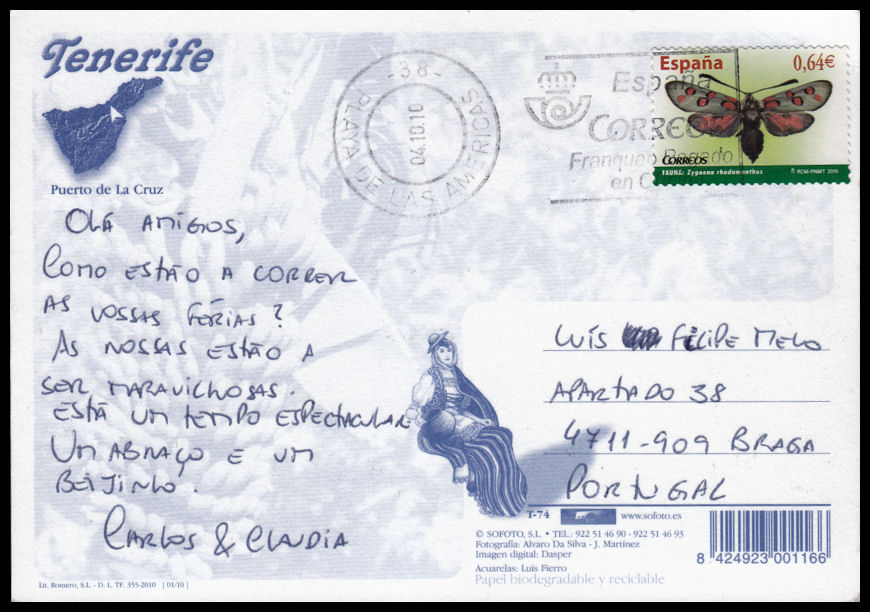 Tenerife
Puerto de La Cruz
- 38 -
PLAYA DE LAS AMERICAS
04.10.10
España
CORREOS
Franqueo Pagado
en C
España
0,64€
CORREOS
FAUNA: Zygaena rhodamanthus
© RCM-FNMT 2010
OLÁ AMIGOS,
COMO ESTÃO A CORRER
AS VOSSAS FÉRIAS?
AS NOSSAS ESTÃO A
SER MARAVILHOSAS.
ESTÁ UM TEMPO ESPECTACULAR
UM ABRAÇO E UM
BEIJINHO.
CARLOS & CLAUDIA
LUÍS FILIPE MELO
APARTADO 38
4711-909 BRAGA
PORTUGAL
T-74
www.sofoto.es
© SOFOTO, S.L. • TEL.: 922 51 46 90 - 922 51 46 93
Fotografía: Alvaro Da Silva - J. Martínez
Imagen digital: Dasper
Acuarelas: Luis Fierro
Papel biodegradable y reciclable
8 424923 001166
Lit. Romero, S.L. - D. L. TF. 355-2010 [ 01/10 ]